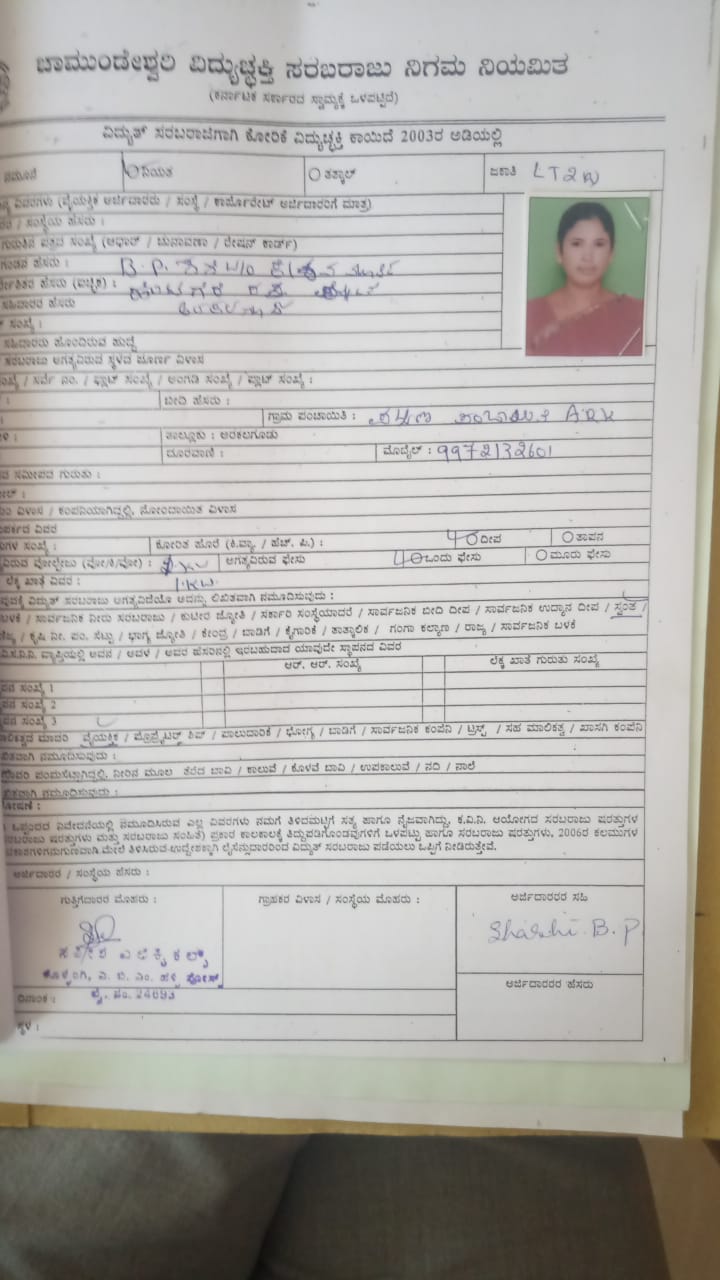 ಚಾಮುಂಡೇಶ್ವರಿ ವಿದ್ಯುಚ್ಛಕ್ತಿ ಸರಬರಾಜು ನಿಗಮ ನಿಯಮಿತ
(ಕರ್ನಾಟಕ ಸರ್ಕಾರದ ಸ್ವಾಮ್ಯಕ್ಕೆ ಒಳಪಟ್ಟಿದೆ)
ವಿದ್ಯುತ್ ಸರಬರಾಜಿಗಾಗಿ ಕೋರಿಕೆ ವಿದ್ಯುಚ್ಛಕ್ತಿ ಕಾಯಿದೆ 2003ರ ಅಡಿಯಲ್ಲಿ
ನಮೂನೆ ನಿಯತ ತತ್ಕಾಲ್ ಜಕಾತಿ LT2
ವಿವರಗಳು (ವೈಯಕ್ತಿಕ ಅರ್ಜಿದಾರರು / ಸಂಸ್ಥೆ / ಕಾರ್ಪೊರೇಟ್ ಅರ್ಜಿದಾರರಿಗೆ ಮಾತ್ರ)
/ ಸಂಸ್ಥೆಯ ಹೆಸರು :
ಗುರುತಿನ ಪತ್ರದ ಸಂಖ್ಯೆ (ಆಧಾರ್ / ಚುನಾವಣಾ / ರೇಷನ್ ಕಾರ್ಡ್)
ಹೆಸರು : B.P. W/O
ಹೆಸರು (ಐಚ್ಛಿಕ) :
ಸಹಿದಾರರ ಹೆಸರು
ಸಂಖ್ಯೆ :
ಸಹಿದಾರರು ಹೊಂದಿರುವ ಹುದ್ದೆ
ಸರಬರಾಜು ಅಗತ್ಯವಿರುವ ಸ್ಥಳದ ಪೂರ್ಣ ವಿಳಾಸ
/ ಸರ್ವೆ ನಂ. / ಫ್ಲಾಟ್ ಸಂಖ್ಯೆ / ಅಂಗಡಿ ಸಂಖ್ಯೆ / ಪ್ಲಾಟ್ ಸಂಖ್ಯೆ :
ಬೀದಿ ಹೆಸರು :
ಗ್ರಾಮ ಪಂಚಾಯಿತಿ :
ತಾಲ್ಲೂಕು : ಅರಕಲಗೂಡು
ದೂರವಾಣಿ : ಮೊಬೈಲ್ : 9972132601
ಸಮೀಪದ ಗುರುತು :
ವಿಳಾಸ / ಕಂಪನಿಯಾಗಿದ್ದಲ್ಲಿ, ನೋಂದಾಯಿತ ವಿಳಾಸ
ವಿವರ
ಸಂಖ್ಯೆ : ಕೋರಿತ ಹೊರೆ (ಕಿ.ವ್ಯಾ. / ಹೆಚ್. ಪಿ.) : ದೀಪ ತಾಪನ
ವೋಲ್ಟೇಜು (ವೋ/ಕಿ/ವೋ) : ಅಗತ್ಯವಿರುವ ಫೇಸು ಒಂದು ಫೇಸು ಮೂರು ಫೇಸು
ಲೆಕ್ಕ ಖಾತೆ ವಿವರ : 1.KW.
ವಿದ್ಯುತ್ ಸರಬರಾಜು ಅಗತ್ಯವಿದೆಯೊ ಅದನ್ನು ಲಿಖಿತವಾಗಿ ನಮೂದಿಸುವುದು :
ಬಳಕೆ / ಸಾರ್ವಜನಿಕ ನೀರು ಸರಬರಾಜು / ಕುಟೀರ ಜ್ಯೋತಿ / ಸರ್ಕಾರಿ ಸಂಸ್ಥೆಯಾದರೆ / ಸಾರ್ವಜನಿಕ ಬೀದಿ ದೀಪ / ಸಾರ್ವಜನಿಕ ಉದ್ಯಾನ ದೀಪ / ಸ್ವಂತ /
/ ಕೃಷಿ ನೀ. ಪಂ. ಸೆಟ್ಟು / ಭಾಗ್ಯ ಜ್ಯೋತಿ / ಕೇಂದ್ರ / ಬಾಡಿಗೆ / ಕೈಗಾರಿಕೆ / ತಾತ್ಕಾಲಿಕ / ಗಂಗಾ ಕಲ್ಯಾಣ / ರಾಜ್ಯ / ಸಾರ್ವಜನಿಕ ಬಳಕೆ
ವ್ಯಾಪ್ತಿಯಲ್ಲಿ ಅವನ / ಅವಳ / ಅವರ ಹೆಸರಿನಲ್ಲಿ ಇರಬಹುದಾದ ಯಾವುದೇ ಸ್ಥಾಪನದ ವಿವರ
ಆರ್. ಆರ್. ಸಂಖ್ಯೆ ಲೆಕ್ಕ ಖಾತೆ ಗುರುತು ಸಂಖ್ಯೆ
ಸಂಖ್ಯೆ 1
ಸಂಖ್ಯೆ 2
ಸಂಖ್ಯೆ 3
ಮಾದರಿ ವೈಯಕ್ತಿಕ / ಪ್ರೊಪ್ರೈಟರ್ ಶಿಪ್ / ಪಾಲುದಾರಿಕೆ / ಭೋಗ್ಯ / ಬಾಡಿಗೆ / ಸಾರ್ವಜನಿಕ ಕಂಪನಿ / ಟ್ರಸ್ಟ್ / ಸಹ ಮಾಲಿಕತ್ವ / ಖಾಸಗಿ ಕಂಪೆನಿ
ನಮೂದಿಸುವುದು :
ಪಂಪುಸೆಟ್ಟಾಗಿದ್ದಲ್ಲಿ, ನೀರಿನ ಮೂಲ ತೆರೆದ ಬಾವಿ / ಕಾಲುವೆ / ಕೊಳವೆ ಬಾವಿ / ಉಪಕಾಲುವೆ / ನದಿ / ನಾಲೆ
ನಮೂದಿಸುವುದು :
ಒಪ್ಪಂದದ ನಿವೇದನೆಯಲ್ಲಿ ನಮೂದಿಸಿರುವ ಎಲ್ಲ ವಿವರಗಳು ನಮಗೆ ತಿಳಿದಮಟ್ಟಿಗೆ ಸತ್ಯ ಹಾಗೂ ನೈಜವಾಗಿದ್ದು, ಕ.ವಿ.ನಿ. ಆಯೋಗದ ಸರಬರಾಜು ಷರತ್ತುಗಳ
ಷರತ್ತುಗಳು ಮತ್ತು ಸರಬರಾಜು ಸಂಹಿತೆ) ಪ್ರಕಾರ ಕಾಲಕಾಲಕ್ಕೆ ತಿದ್ದುಪಡಿಗೊಂಡವುಗಳಿಗೆ ಒಳಪಟ್ಟು ಹಾಗೂ ಸರಬರಾಜು ಷರತ್ತುಗಳು, 2006ರ ಕಲಮುಗಳ
ಮೇಲೆ ತಿಳಿಸಿರುವ ಉದ್ದೇಶಕ್ಕಾಗಿ ಲೈಸೆನ್ಸುದಾರರಿಂದ ವಿದ್ಯುತ್ ಸರಬರಾಜು ಪಡೆಯಲು ಒಪ್ಪಿಗೆ ನೀಡಿರುತ್ತೇವೆ.
ಅರ್ಜಿದಾರರ / ಸಂಸ್ಥೆಯ ಹೆಸರು :
ಗುತ್ತಿಗೆದಾರರ ಮೊಹರು : ಗ್ರಾಹಕರ ವಿಳಾಸ / ಸಂಸ್ಥೆಯ ಮೊಹರು : ಅರ್ಜಿದಾರರರ ಸಹಿ
Shashi. B. P
ಎಲೆಕ್ಟ್ರಿಕಲ್ಸ್
ಪೋಸ್ಟ್
ನಂ. 24693
ಅರ್ಜಿದಾರರರ ಹೆಸರು
ದಿನಾಂಕ :
ಸ್ಥಳ :